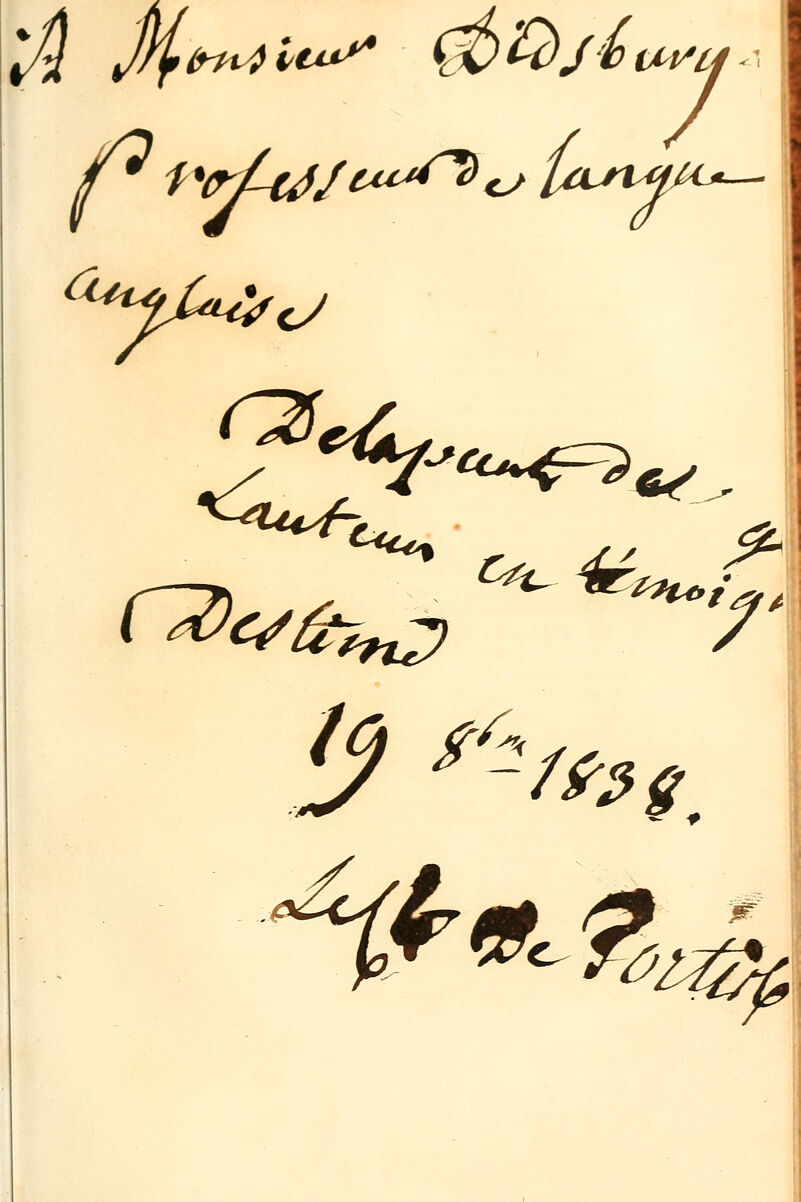 A Monsieur Didsbury
Professeur de langue
anglaise
Delapart de
Lauteur en témoig
Destime
19 8bre 1838.
De